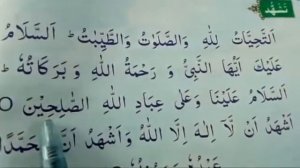 تشهد
اَلتَّحِيَّاتُ لِلّٰهِ وَالصَّلَوٰتُ وَالطَّيِّبٰتُ ؕ اَلسَّلَامُ
عَلَيْكَ اَيُّهَا النَّبِيُّ وَ رَحْمَةُ اللّٰهِ وَ بَرَكَاتُهٗ ؕ
اَلسَّلَامُ عَلَيْنَا وَعَلٰى عِبَادِ اللّٰهِ الصّٰلِحِيْنَ ○
اَشْهَدُ اَنْ لَّا اِلٰهَ اِلَّا اللّٰهُ وَاَشْهَدُ اَنَّ مُحَمَّدًا